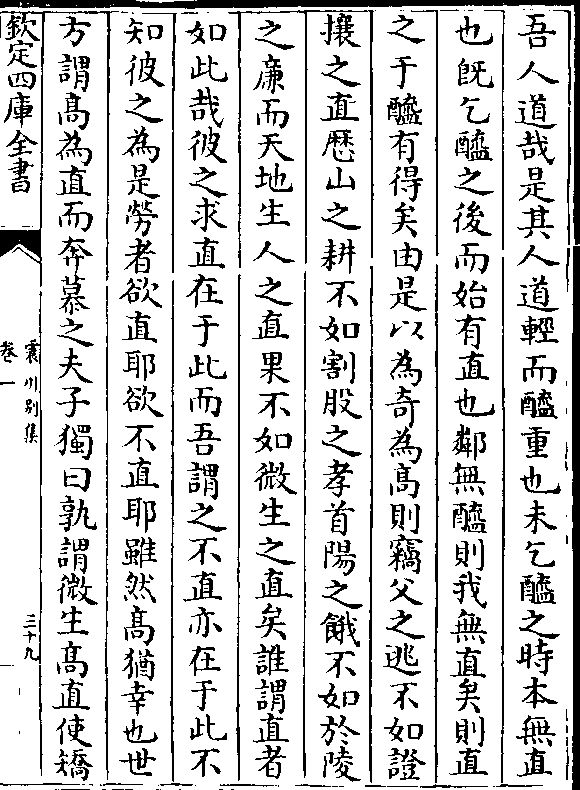 吾人道哉是其人道輕而醯重也未乞醯之時本無直
也旣乞醯之後而始有直也鄰無醯則我無直矣則直
之于醯有得矣由是以為奇為高則竊父之逃不如證
攘之直歴山之耕不如割股之孝首陽之餓不如於陵
之廉而天地生人之直果不如微生之直矣誰謂直者
如此哉彼之求直在于此而吾謂之不直亦在于此不
知彼之為是勞者欲直耶欲不直耶雖然高猶幸也世
方謂高為直而奔慕之夫子獨曰孰謂微生高直使矯
欽定四庫全書
震川别集
卷一
三十九